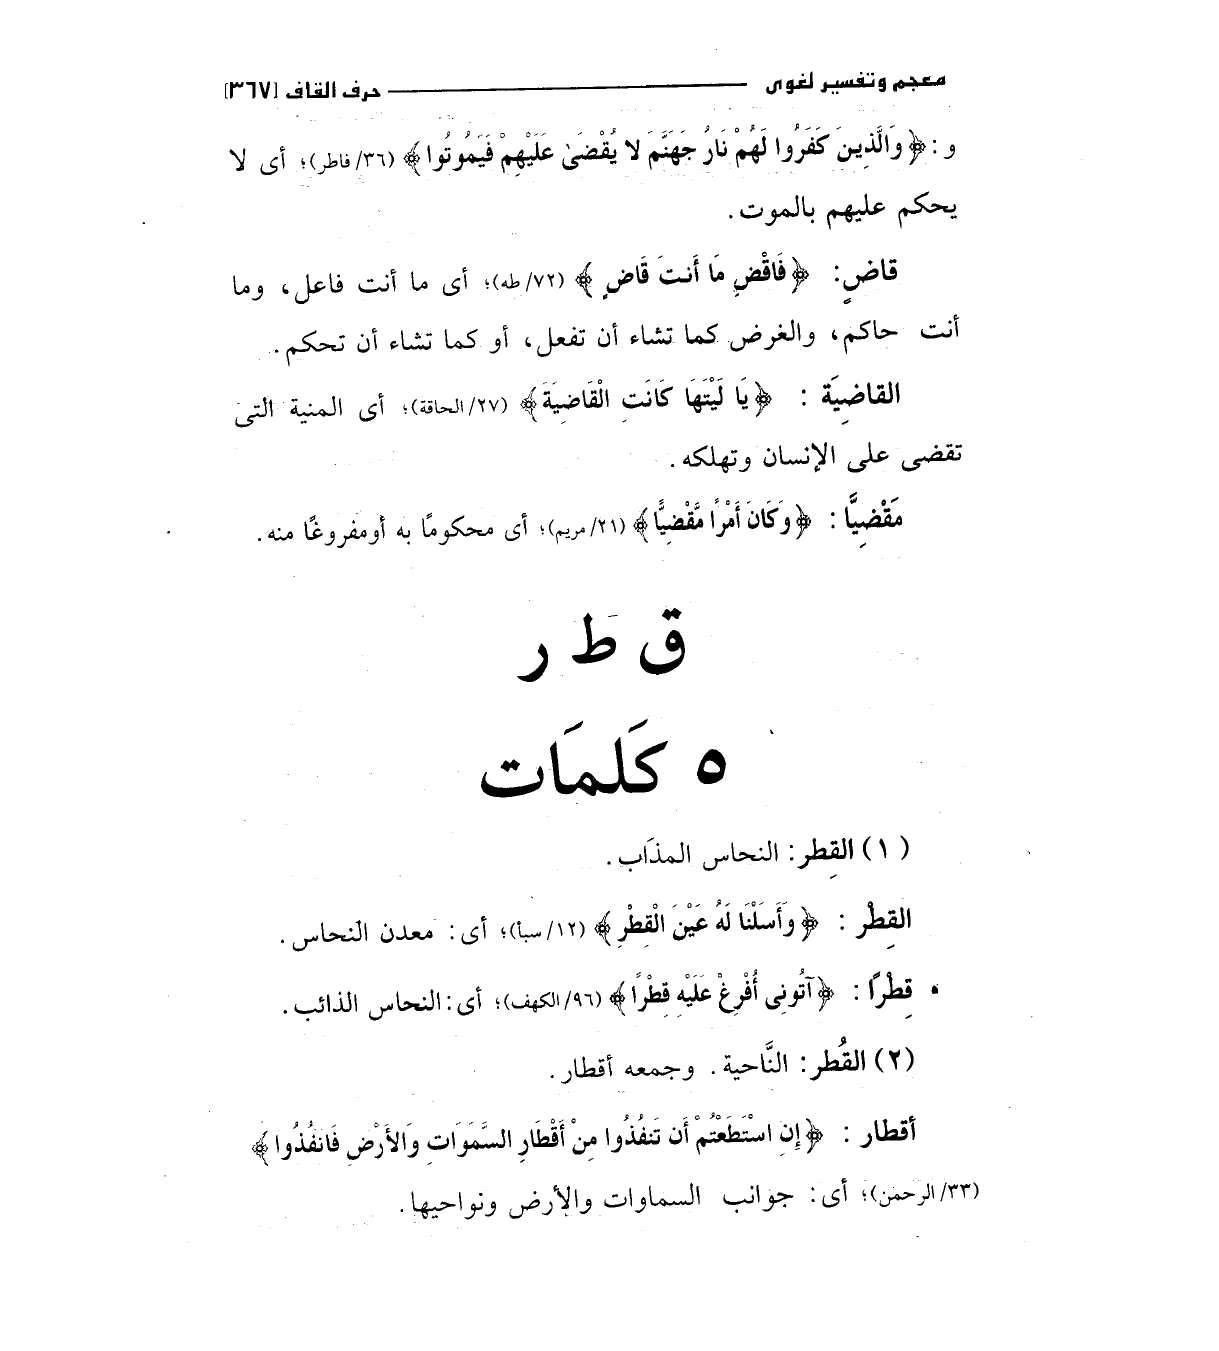 معجم وتفسير لغوى ـــــــ حرف القاف [٣٦٧]
و : ﴿ وَالَّذِينَ كَفَرُوا لَهُمْ نَارُ جَهَنَّمَ لا يُقْضَىٰ عَلَيْهِمْ فَيَمُوتُوا ﴾ (٣٦/ فاطر)؛ أى لا
يحكم عليهم بالموت.
قاضٍ: ﴿ فَاقْضِ مَا أَنتَ قَاضٍ ﴾ (٧٢/ طه)؛ أى ما أنت فاعل، وما
أنت حاكم، والغرض كما تشاء أن تفعل، أو كما تشاء أن تحكم.
القاضِيَة : ﴿ يَا لَيْتَهَا كَانَتِ الْقَاضِيَةَ ﴾ (٢٧/ الحاقة)؛ أى المنية التى
تقضى على الإنسان وتهلكه.
مَقْضِيًّا : ﴿ وَكَانَ أَمْرًا مَّقْضِيًّا ﴾ (٢١/ مريم)؛ أى محكومًا به أومفروغًا منه.
ق ط ر
٥ كَلمَات
(١) القِطر: النحاس المذَاب.
القِطْر : ﴿ وَأَسَلْنَا لَهُ عَيْنَ الْقِطْرِ ﴾ (١٢/ سبأ)؛ أى: معدن النحاس.
• قِطْرًا : ﴿ آتُونِى أُفْرِغْ عَلَيْهِ قِطْرًا ﴾ (٩٦/ الكهف)؛ أى: النحاس الذائب.
(٢) القُطر: النَّاحية. وجمعه أقطار.
أقطار : ﴿ إِنِ اسْتَطَعْتُمْ أَن تَنفُذُوا مِنْ أَقْطَارِ السَّمَوَاتِ وَالأَرْضِ فَانفُذُوا ﴾
(٣٣/ الرحمن)؛ أى: جوانب السماوات والأرض ونواحيها.